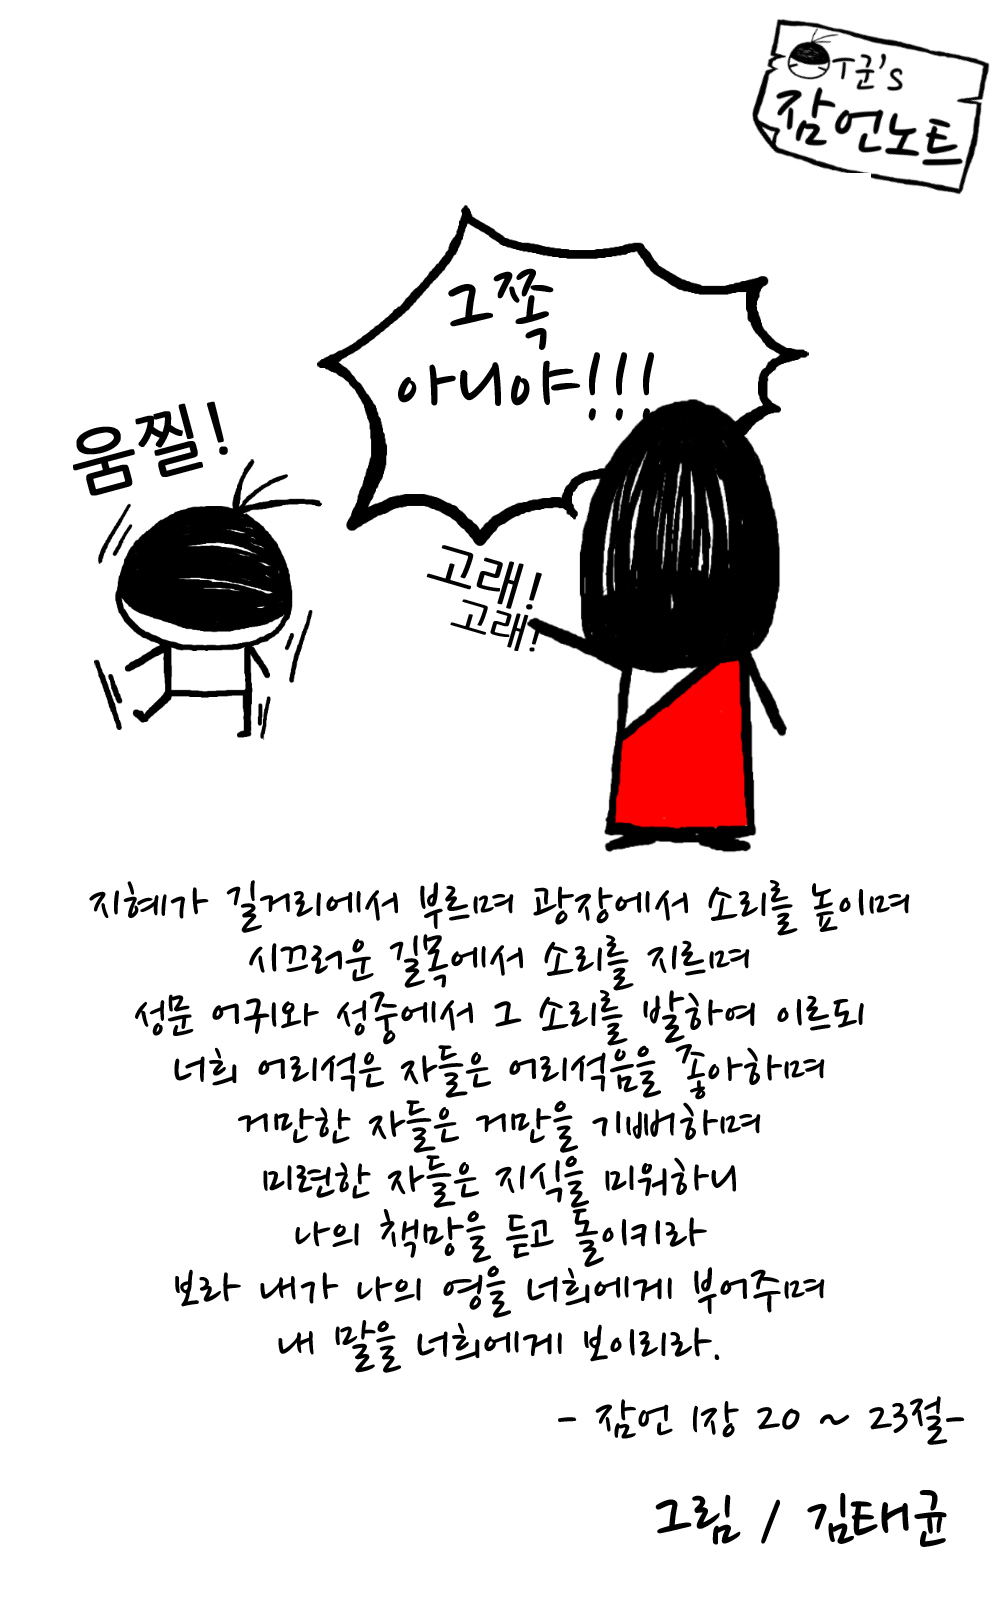 T군's
잠언노트
그쪽
아니야!!!
움찔!
고래!
고래!
지혜가 길거리에서 부르며 광장에서 소리를 높이며
시끄러운 길목에서 소리를 지르며
성문 어귀와 성중에서 그 소리를 발하여 이르되
너희 어리석은 자들은 어리석음을 좋아하며
거만한 자들은 거만을 기뻐하며
미련한 자들은 지식을 미워하니
나의 책망을 듣고 돌이키라
보라 내가 나의 영을 너희에게 부어주며
내 말을 너희에게 보이리라.
- 잠언 1장 20 ~ 23절-
그림 / 김태균